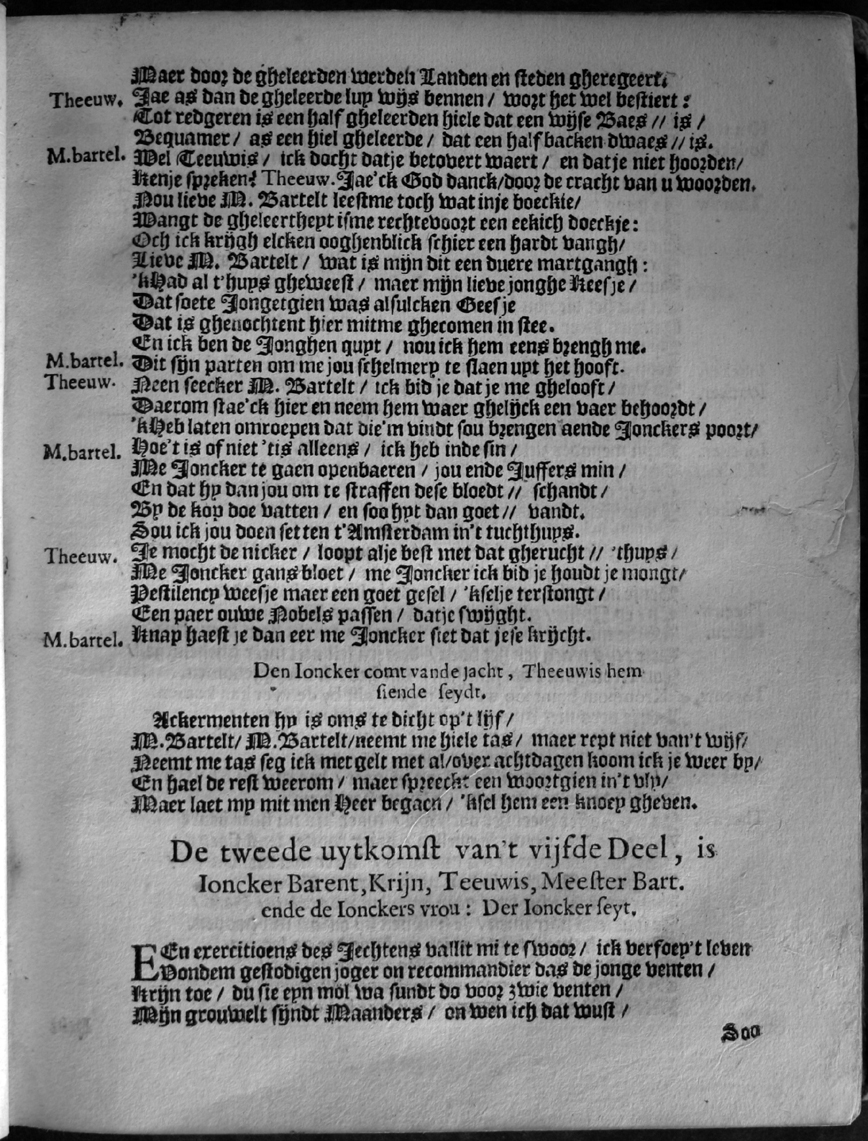 Maer door de gheleerden werden Landen en steden gheregeert.
Theeuw. Jae as dan de gheleerde luy wijs bennen / wort het wel bestiert :
Tot redgeren is een half gheleerden hiele dat een wijse Baes // is /
Bequamer / as een hiel gheleerde / dat een half backen dwaes // is.
M.bartel. Wel Teeuwis / ick docht datje betovert waert / en datje niet hoorden /
Kenje spreken? Theeuw. Jae'ck God danck / door de cracht van u woorden.
Nou lieve M. Bartelt leestme toch wat inje boeckie /
Wangt de gheleertheyt isme rechtevoort een eekich doeckje :
Och ick krijgh elcken ooghenblick schier een hardt vangh /
Lieve M. Bartelt / wat is mijn dit een duere martgangh :
'kHad al t'huys gheweest / maer mijn lieve jonghe Keesje /
Dat soete Jongetgien was alsulcken Geesje
Dat is ghenochtent hier mitme ghecomen in stee.
En ick ben de Jonghen quyt / nou ick hem eens brengh me.
M.bartel. Dit sijn parten om me jou schelmery te slaen uyt het hooft.
Theeuw. Neen seecker M. Bartelt / ick bid je dat je me ghelooft /
Daerom stae'ck hier en neem hem waer ghelijck een vaer behoordt /
'kHeb laten omroepen dat die'm vindt sou brengen aende Jonckers poort /
M.bartel. Hoe't is of niet 'tis alleens / ick heb inde sin /
Me Joncker te gaen openbaeren / jou ende Juffers min /
En dat hy dan jou om te straffen dese bloedt // schandt /
By de kop doe vatten / en soo hyt dan goet // vandt.
Sou ick jou doen setten t'Amsterdam in't tuchthuys.
Theeuw. Je mocht de nicker / loopt alje best met dat gherucht // 'thuys /
Me Joncker gans bloet / me Joncker ick bid je houdt je mongt /
Pestilency weesje maer een goet gesel / 'kselje terstongt /
Een paer ouwe Nobels passen / datje swijght.
M.bartel. Knap haest je dan eer me Joncker siet dat jese krijcht.
Den Ioncker comt vande jacht, Theeuwis hem
siende seydt.
Ackermenten hy is oms te dicht op't lijf /
M.Bartelt / M.Bartelt / neemt me hiele tas / maer rept niet van't wijf /
Neemt me tas seg ick met gelt met al / over achtdagen koom ick je weer by /
En hael de rest weerom / maer spreeckt een woortgien in't vly /
Maer laet my mit men Heer begaen / 'ksel hem een knoep gheven.
De tweede uytkomst van't vijfde Deel, is
Ioncker Barent, Krijn, Teeuwis, Meester Bart.
ende de Ionckers vrou : Der Ioncker seyt.
EEn exercitioens des Jechtens vallit mi te swoor / ick versoep't leven
Vondem gestodigen joger on recommandier das de jonge venten /
Krijn toe / du sie eyn mol wa sundt do voor zwie venten /
Mijn grouwelt sijndt Maanders / on wen ich dat wust /
Soo